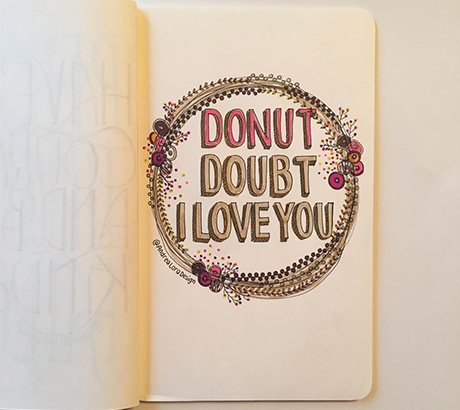 DONUT
DOUBT
I LOVE YOU
@AndreaLaraDesign